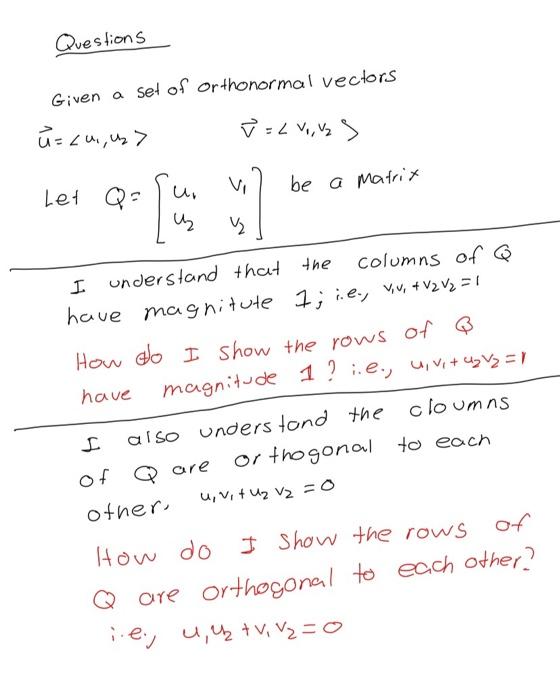 Questions
Given a set of orthonormal vectors
u⃗ = < u₁, u₂ > v⃗ = < v₁, v₂ >
Let Q = [u₁ v₁
u₂ v₂] be a Matrix
I understand that the columns of Q
have magnitute 1; i.e., v₁v₁ + v₂v₂ = 1
How do I show the rows of Q
have magnitude 1? i.e., u₁v₁ + u₂v₂ = 1
I also understand the cloumns
of Q are orthogonal to each
other. u₁v₁ + u₂v₂ = 0
How do I show the rows of
Q are orthogonal to each other?
i.e., u₁u₂ + v₁v₂ = 0